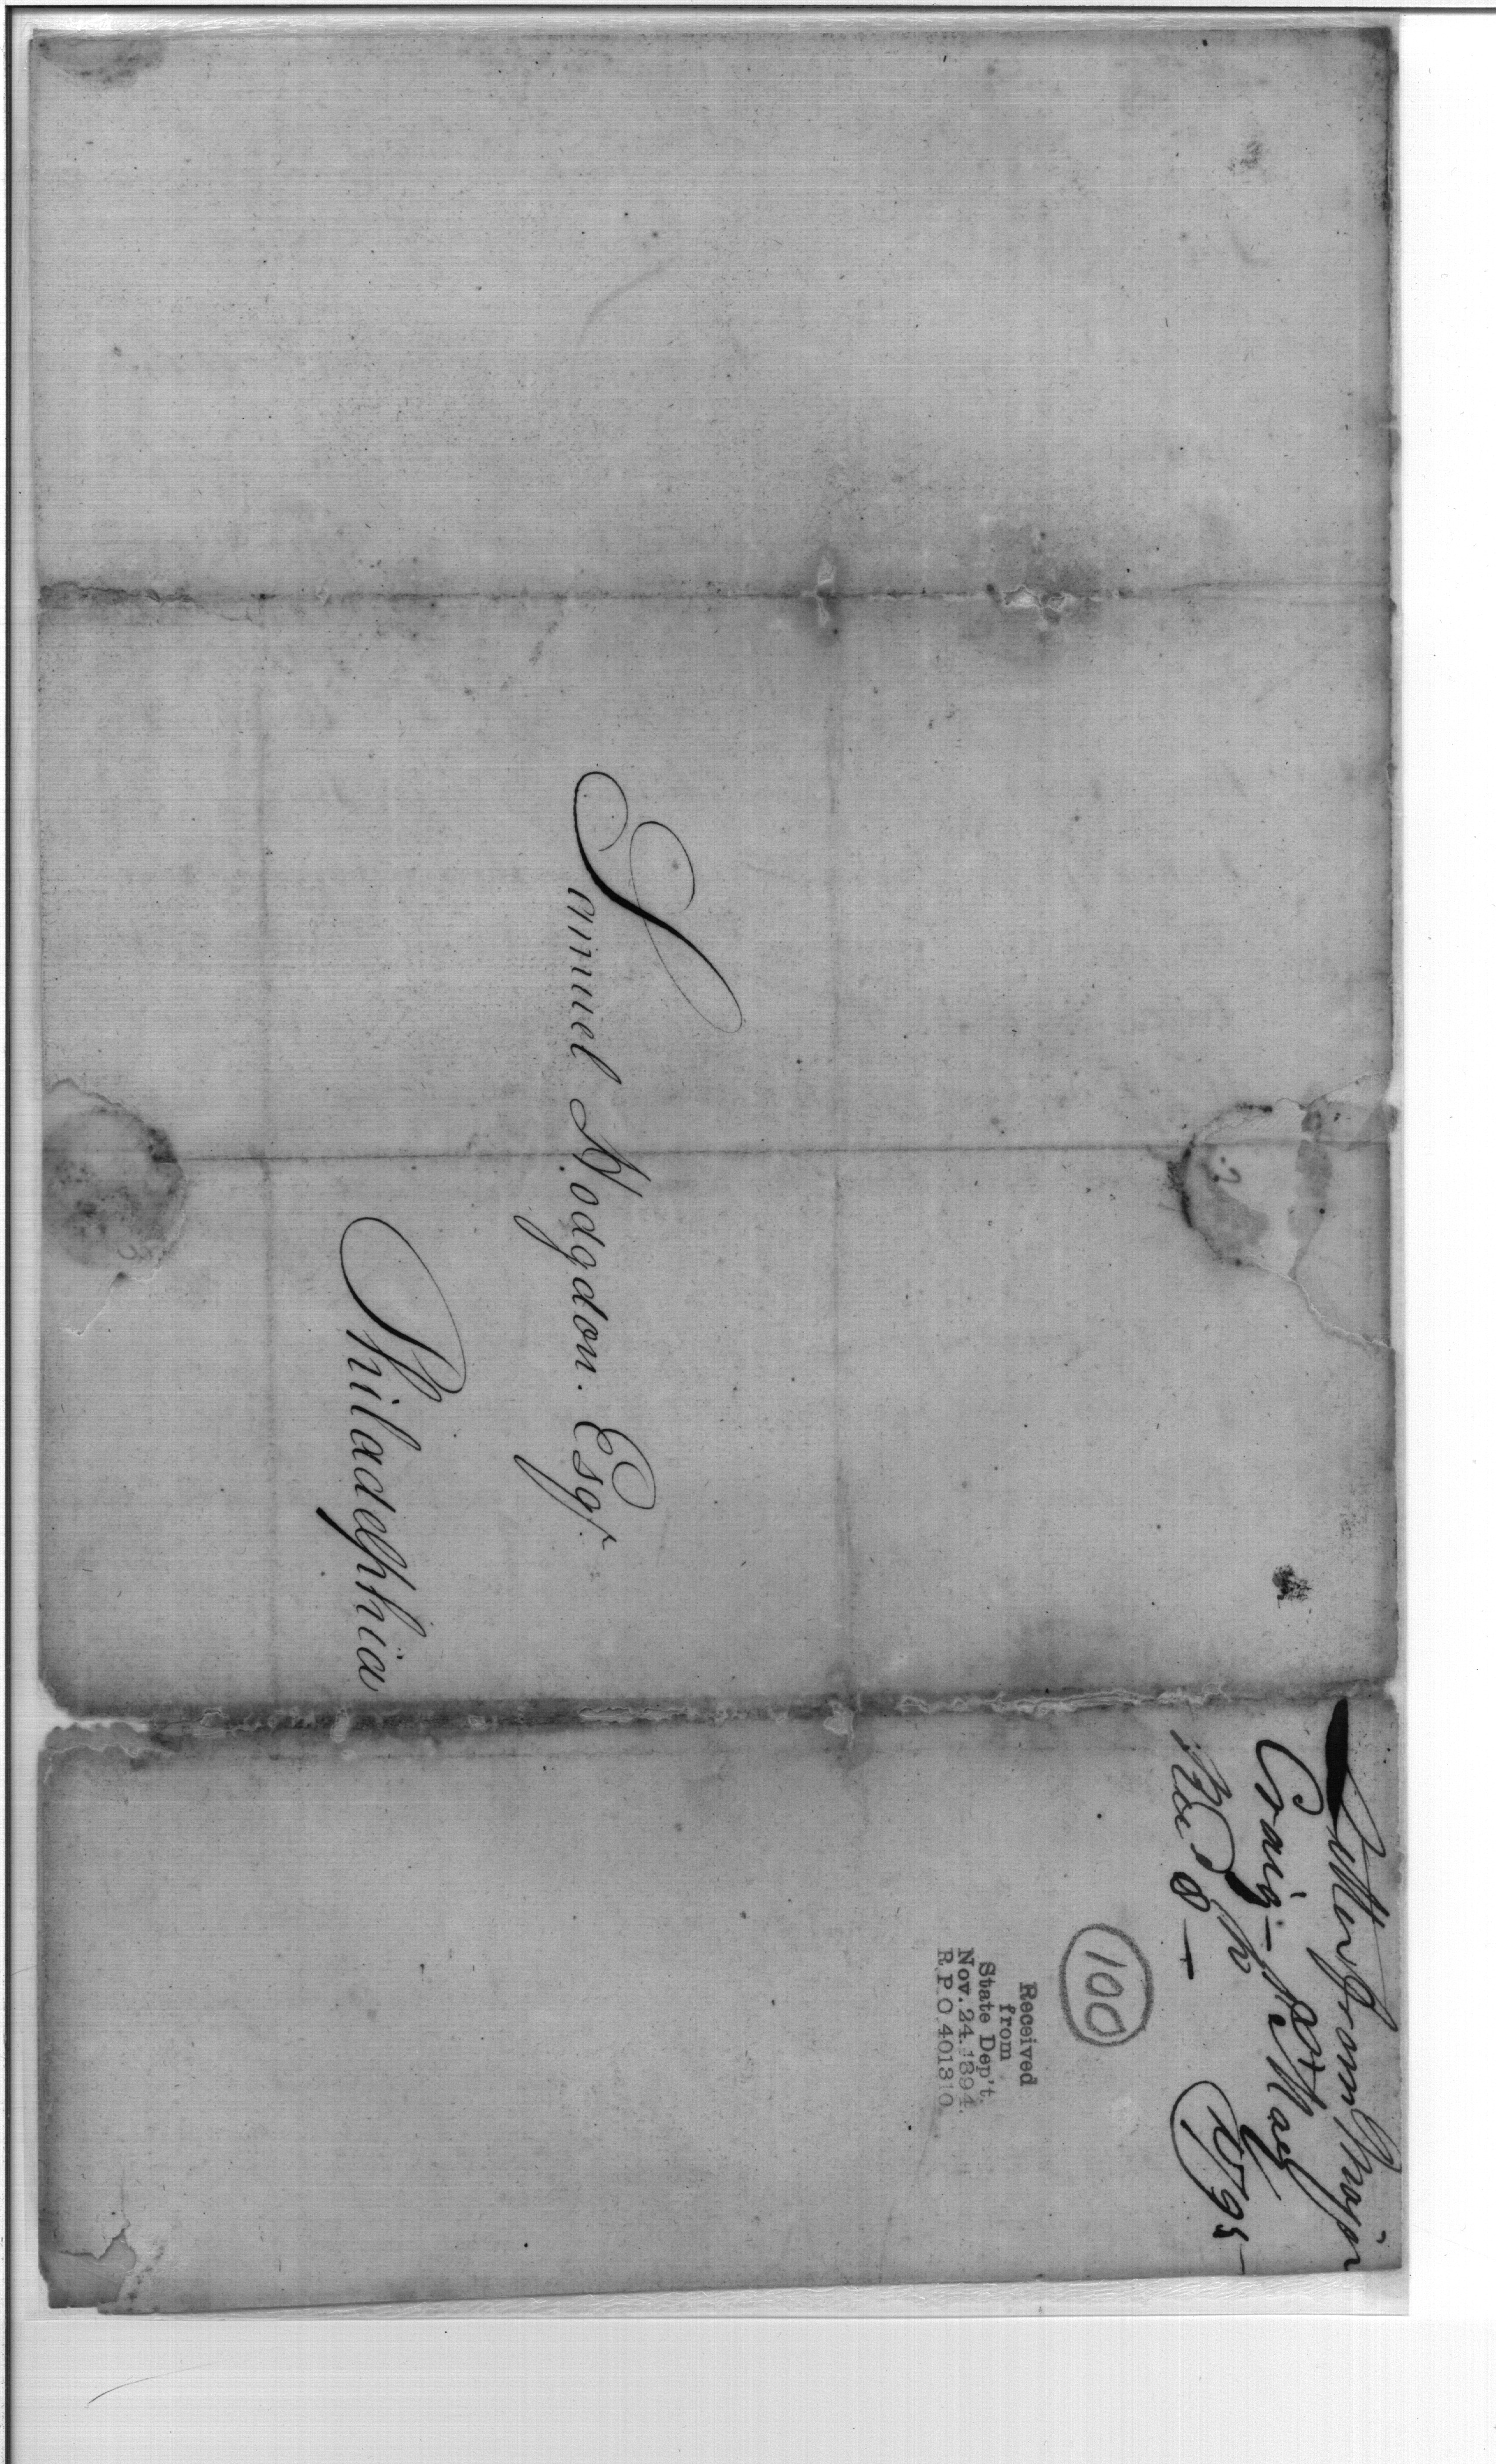 Samuel Hodgdon. Esqr.
Philadelphia
Letter from Major
Craig — 1st May
Rec'd 8 —
1795 —
100
Received
from
State Dep't.
Nov. 24. 1894.
R.P.O. 401310